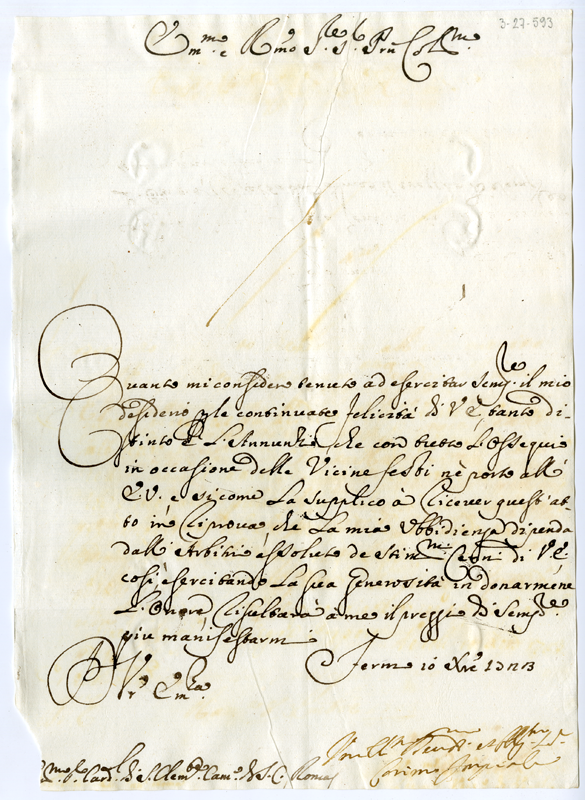 3-27-593
Em.mo e Rmo S.re S.r Prn Col.mo
Quanto mi considero tenuto ad esercitar semp.re il mio
desiderio p le continuate felicità di V E, tanto di-
stinto è L'Annunzio che con tutto L'Ossequio
in occasione delle Vicine feste nè porto all'
E.V. e sicome La supplico à ricever quest'at-
to in riprova che La mia Ubbidienza dipenda
dall'Arbitrio assoluto de stim.mi Ceñi di V E
così esercitando La sua Generosità in donarmene
L'Onore risultarà a me il preggio di Semp.re
più manifestarmi
Fermo 10 Xre
Di V.ra Em.za
Em.o S.r Card.l di S. Clem.te Cam.o di S. C. Roma